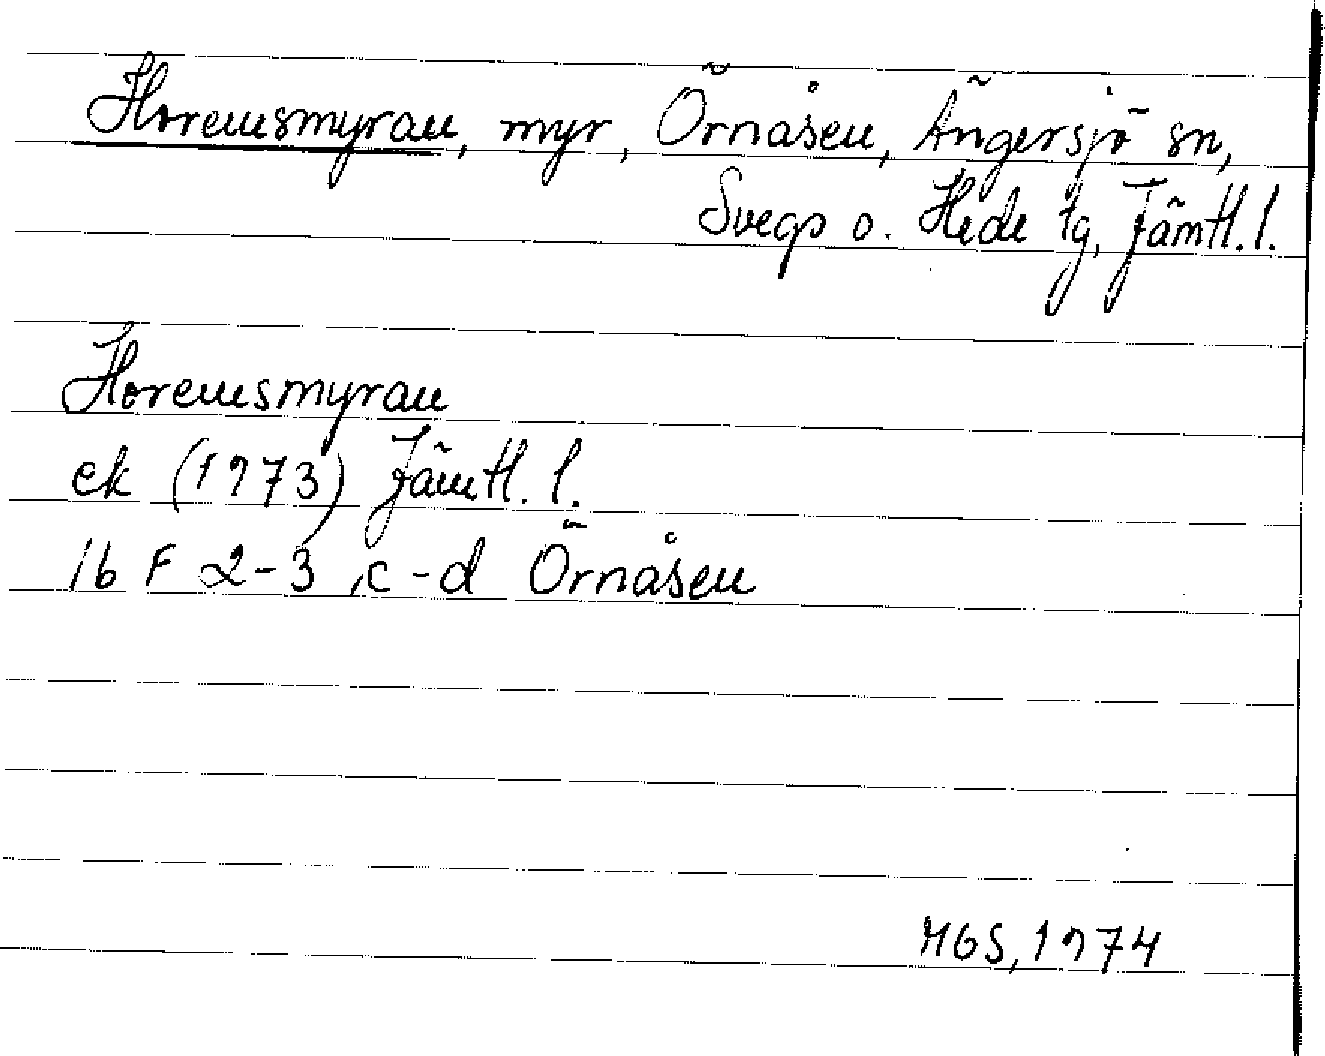 Horensmyran, myr, Örnåsen, Ängersjö sn,
Svegs o. Hede tg, Jämtl. l.
Horensmyran
ek (1973) Jämtl. l.
16 F 2-3, c-d Örnåsen
MGS, 1974